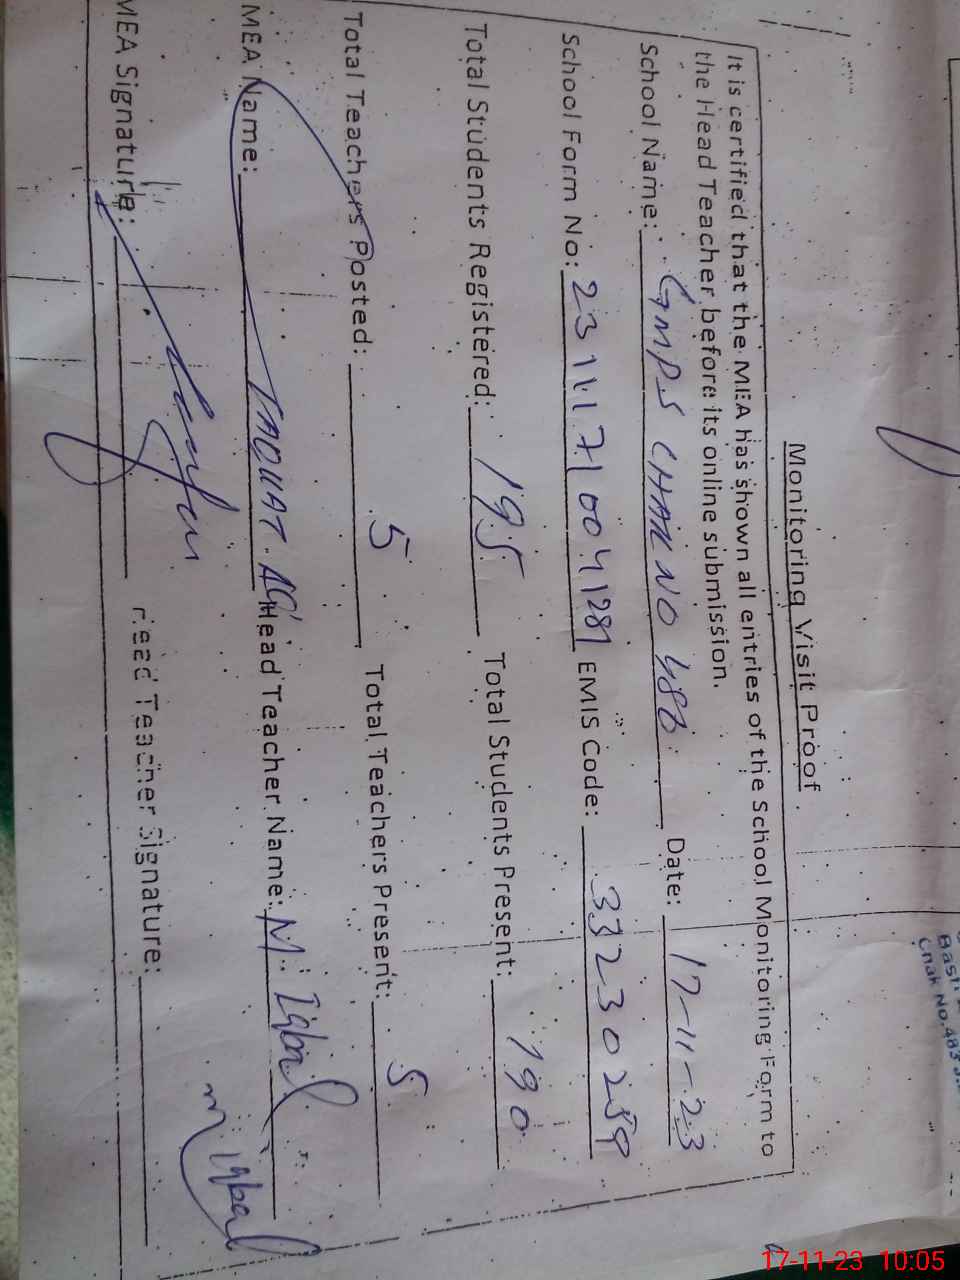 Monitoring Visit Proof
It is certified that the MEA has shown all entries of the School Monitoring Form to
the Head Teacher before its online submission.
School Name: GMPS CHAK NO 486 Date: 17-11-23
School Form No: EMIS Code: 33230289
Total Students Registered: 195 Total Students Present: 190
Total Teachers Posted: 5 Total Teachers Present: 5
MEA Name: TAQUAT Head Teacher Name: M. Iqbal
MEA Signature: Head Teacher Signature: M iqbal
Chak No. 483
17-11-23 10:05